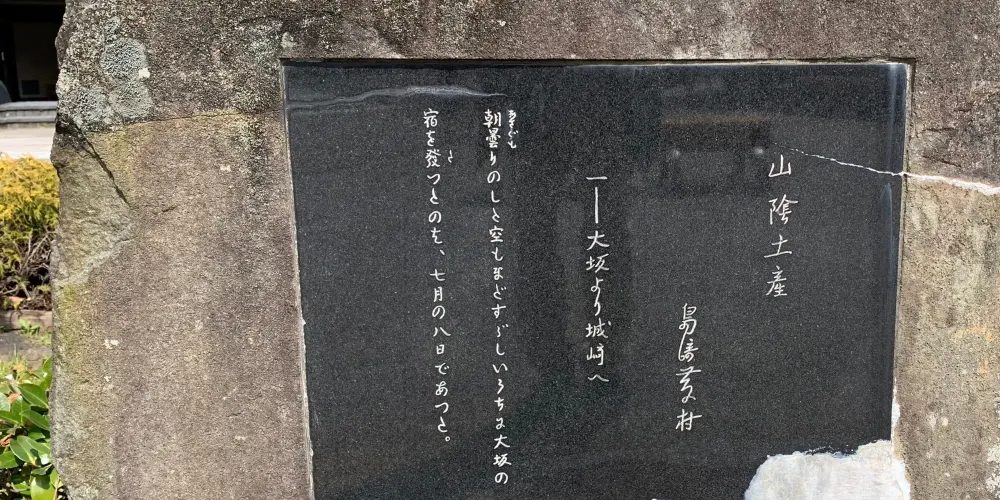 山陰土産
島崎藤村
一 ― 大坂より城崎へ
あさぐも
朝曇りのした空もまだすゞしいうちに大坂の
た
宿を發つたのは、七月の八日であつた。